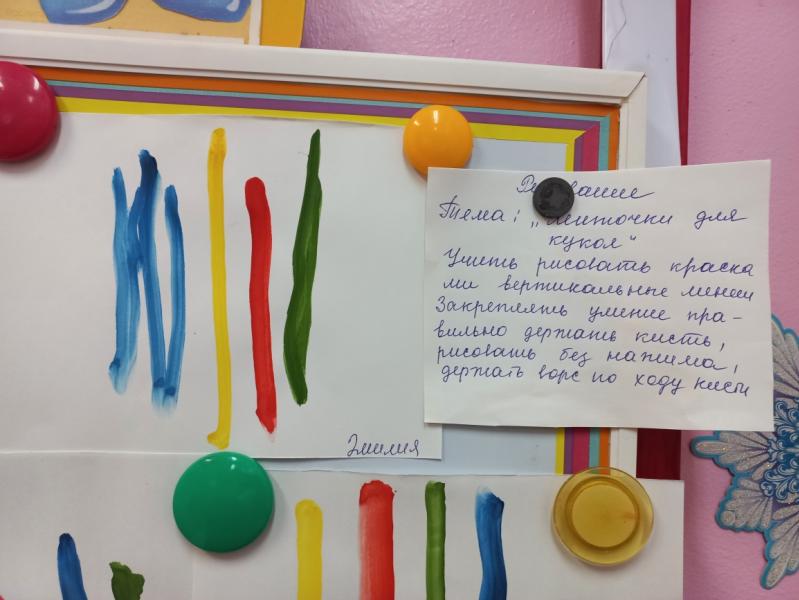 Тема: „Ленточки для
кукол“
Учить рисовать краска
ми вертикальные линии
Закреплять умение пра-
вильно держать кисть,
рисовать без нажима,
держать ворс по ходу кисти
Эмилия